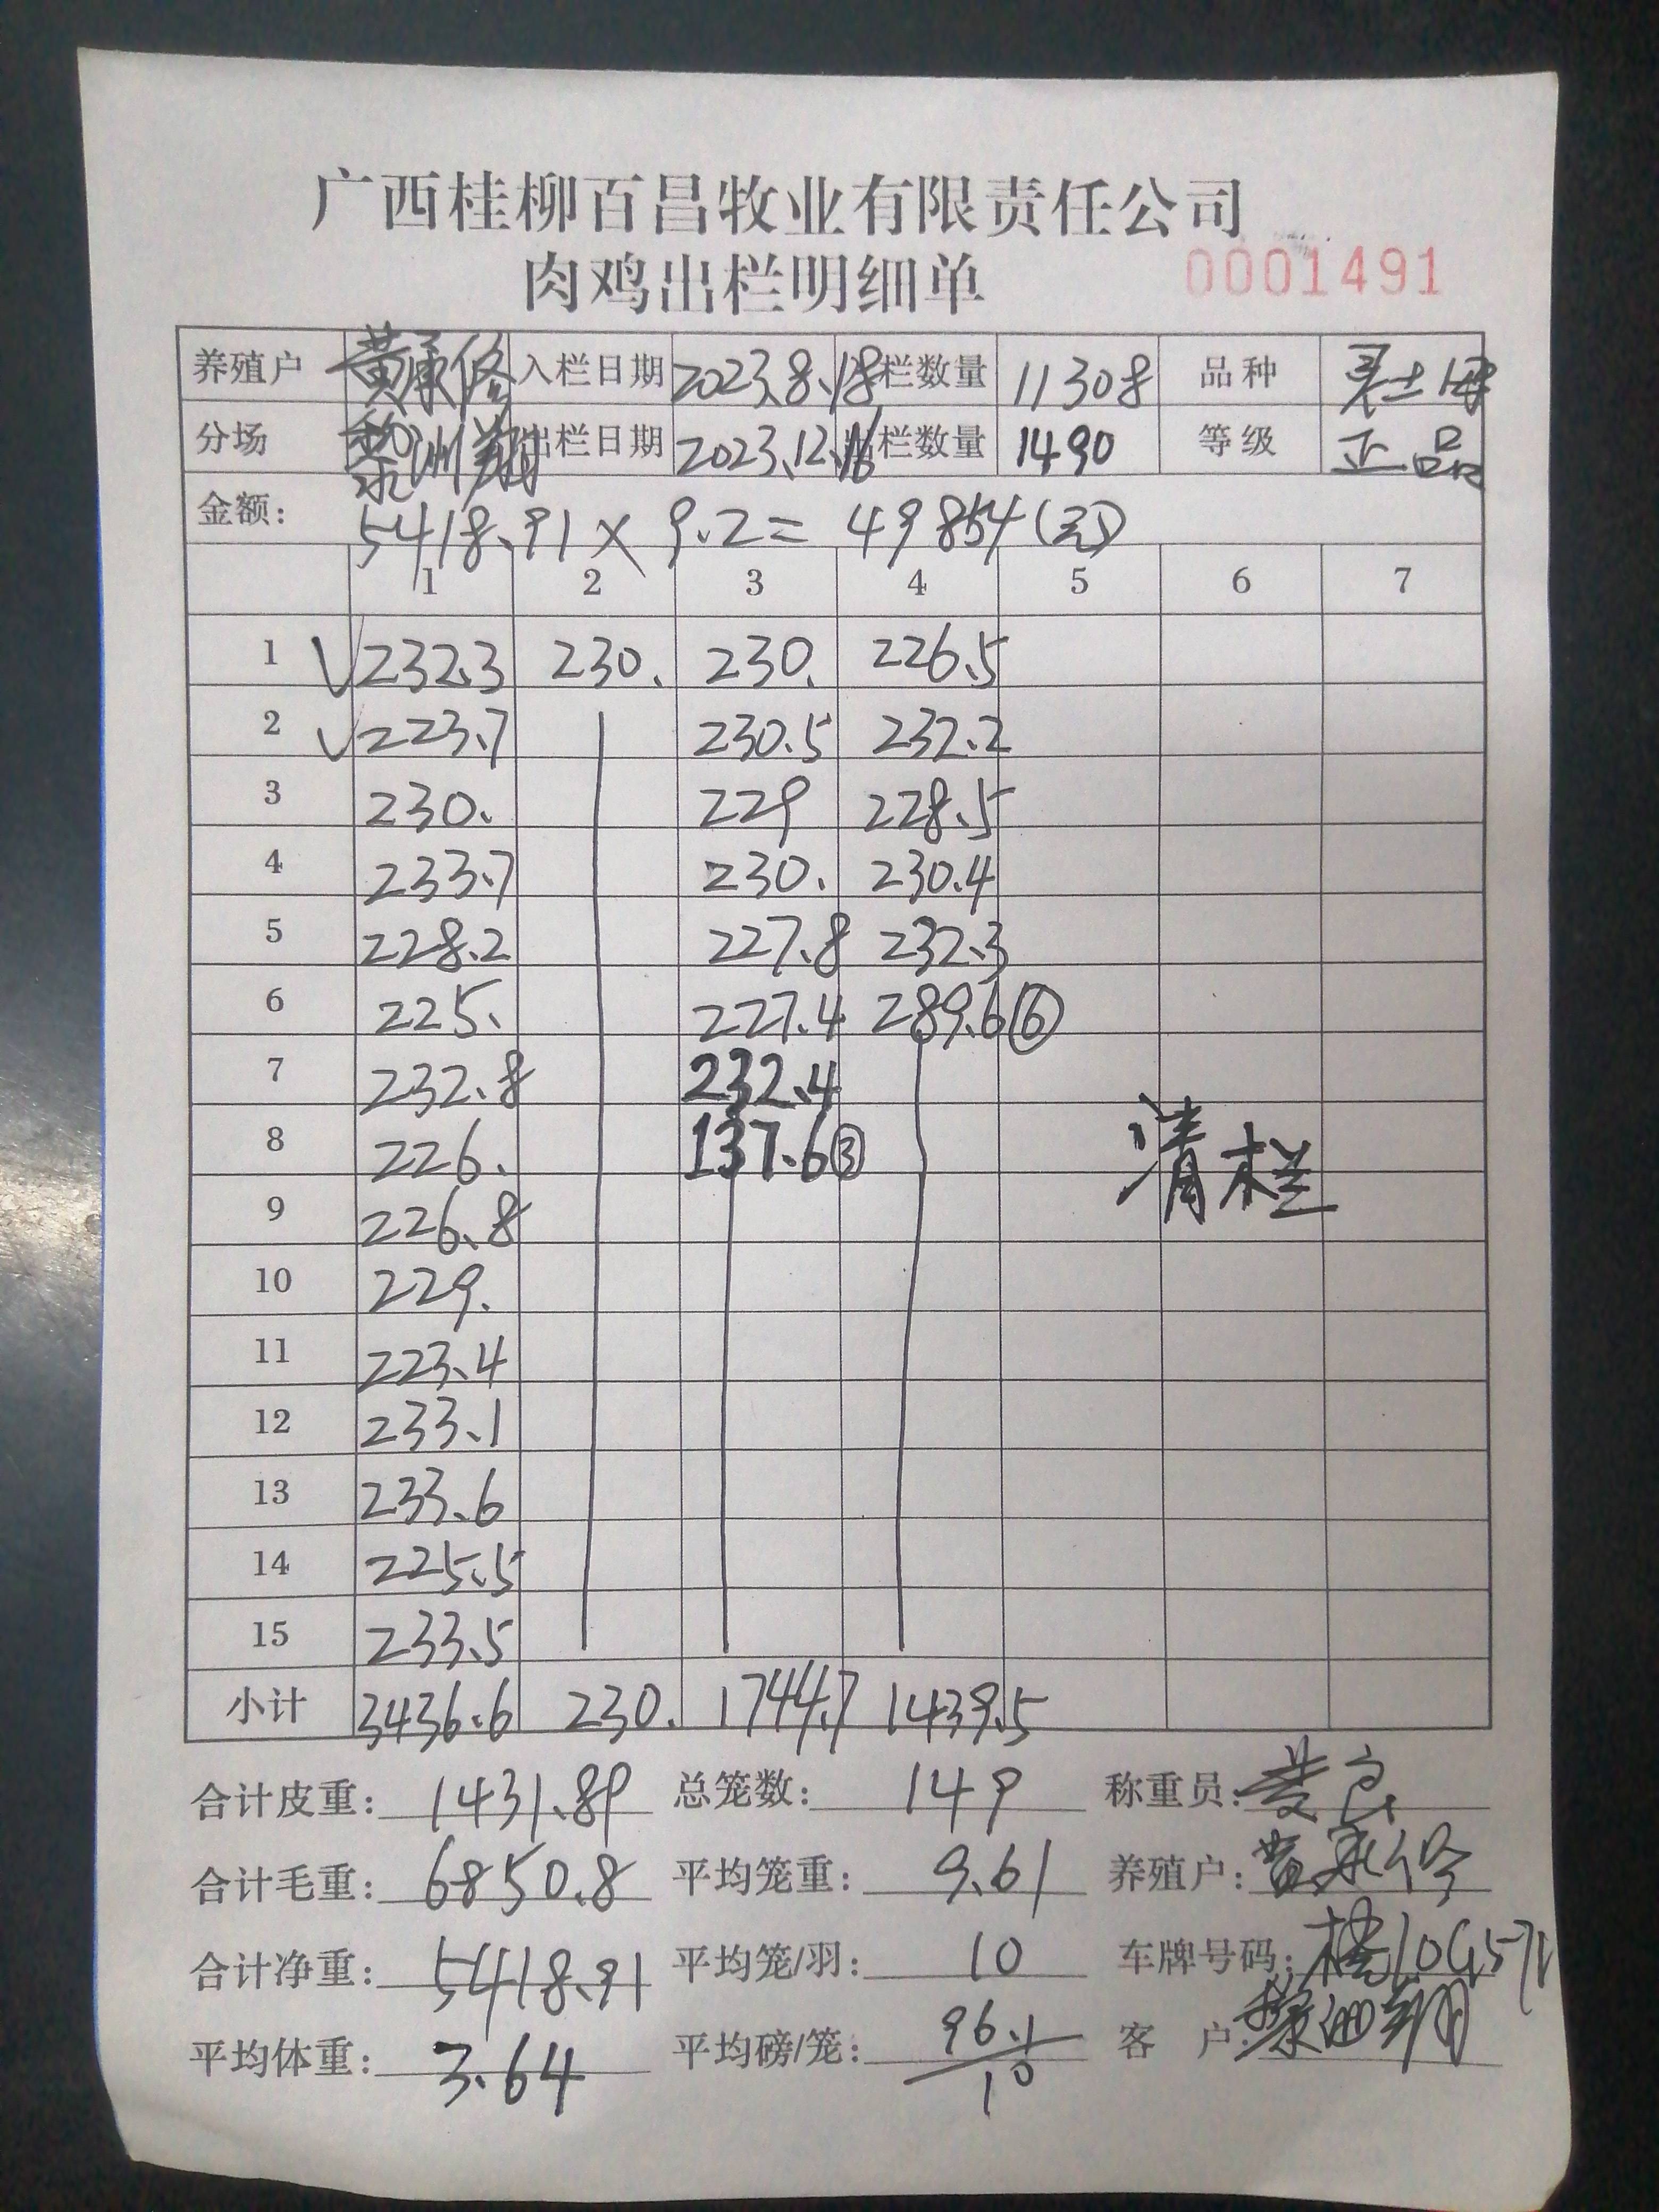 广西桂柳百昌牧业有限责任公司
肉鸡出栏明细单 0001491
养殖户 黄承修 入栏日期 2023.8.18 栏数量 11308 品种
分场 黎洲翔 出栏日期 2023.12.16 栏数量 1490 等级 正品
金额: 5418.91×9.2=49854(元)
1 2 3 4 5 6 7
1 √232.3 230. 230. 226.5
2 √223.7 230.5 232.2
3 230. 229 228.5
4 233.7 230. 230.4
5 228.2 227.8 232.3
6 225. 227.4 289.6⑥
7 232.8 232.4
8 226. 137.6③ 清栏
9 226.8
10 229.
11 223.4
12 233.1
13 233.6
14 225.5
15 233.5
小计 3436.6 230. 1744.7 1439.5
合计皮重: 1431.89 总笼数: 149 称重员:
合计毛重: 6850.8 平均笼重: 9.61 养殖户: 黄承修
合计净重: 5418.91 平均笼/羽: 10 车牌号码:
平均体重: 3.64 平均磅/笼: 96.1/10 客 户: 黎洲翔